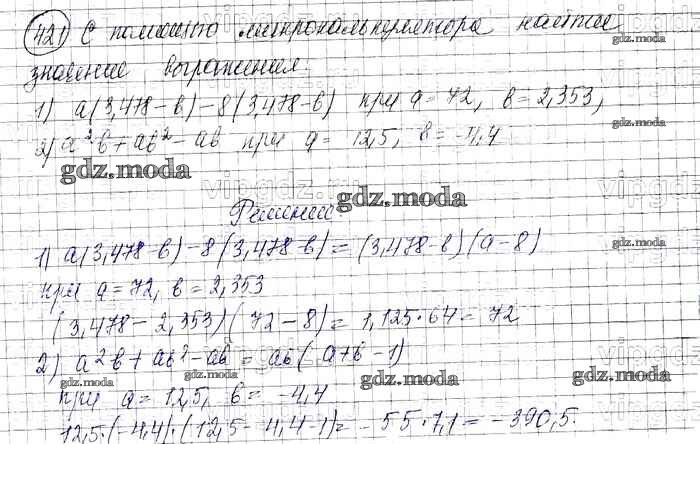 421 С помощью микрокалькулятора найти
значение выражения:
1) a(3,478-b)-8(3,478-b) при a=72, b=2,353,
2) a²b+ab²-ab при a=12,5, b=-4,4
Решение:
1) a(3,478-b)-8(3,478-b)=(3,478-b)(a-8)
при a=72, b=2,353
(3,478-2,353)(72-8)=1,125·64=72
2) a²b+ab²-ab=ab(a+b-1)
при a=12,5, b=-4,4
12,5·(-4,4)·(12,5-4,4-1)=-55·7,1=-390,5.
gdz.moda
gdz.moda
gdz.moda
gdz.moda
gdz.moda
gdz.moda
gdz.moda
gdz.moda
gdz.moda
gdz.moda
vipgdz.ru